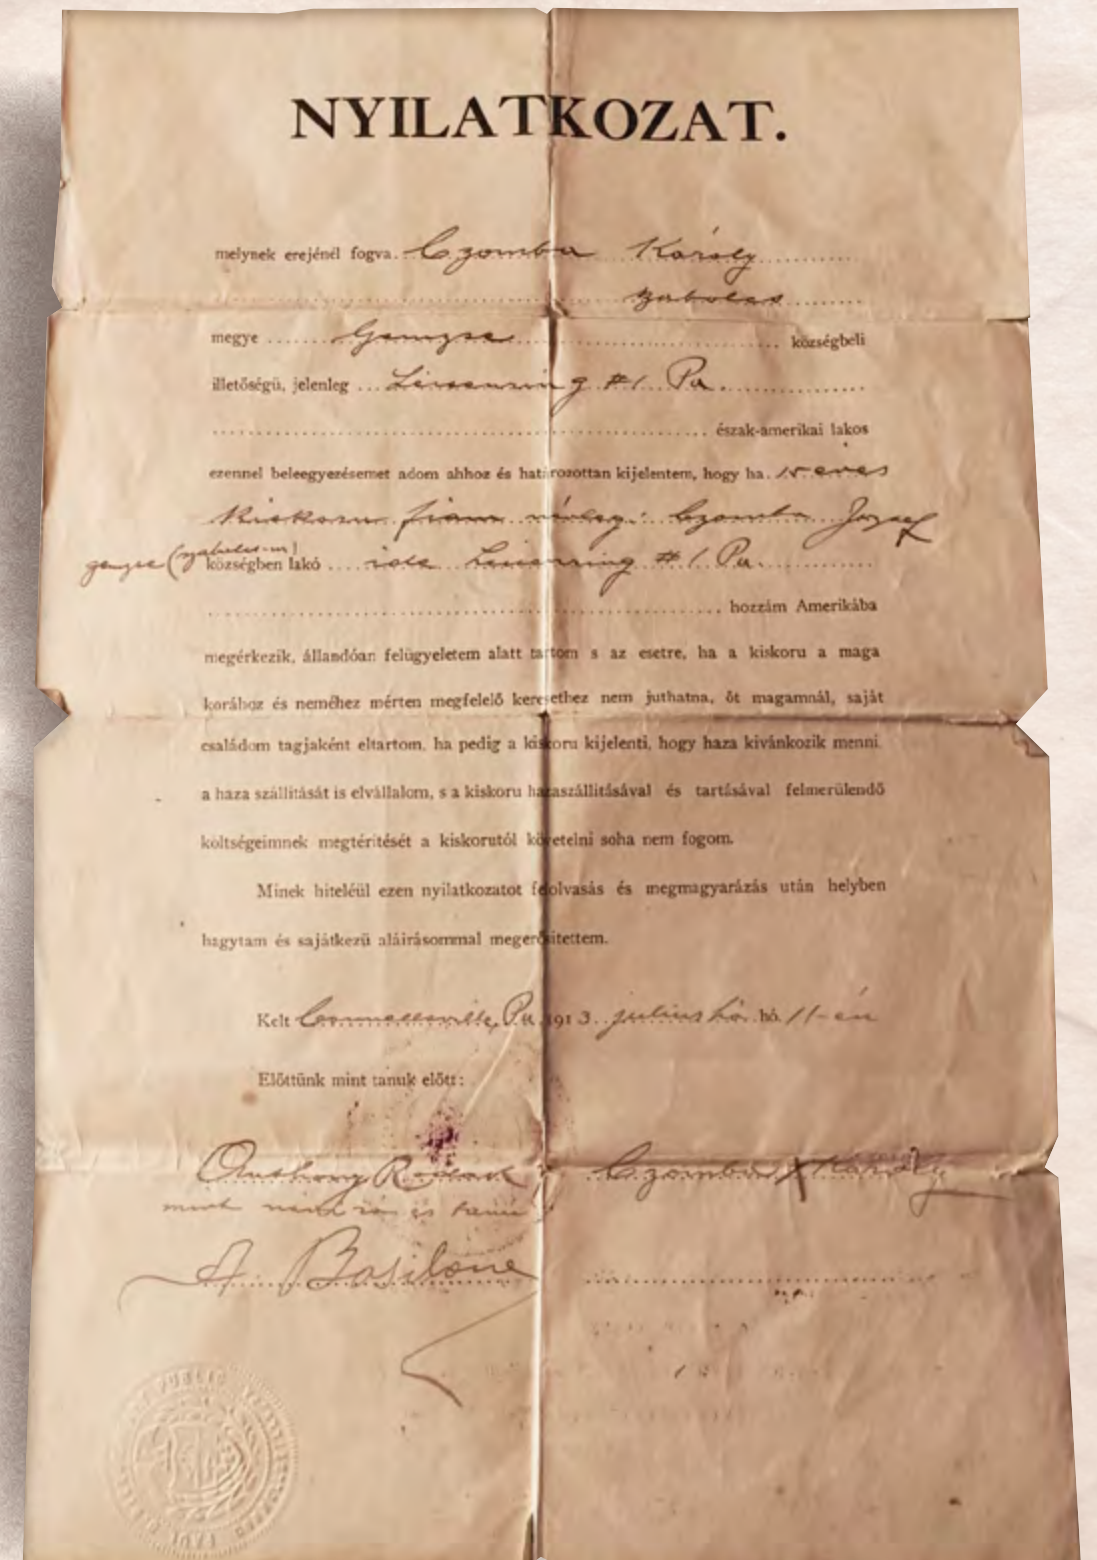 NYILATKOZAT.
melynek erejénél fogva Czomba Károly
Szabolcs
megye Gemzse községbeli
illetőségü, jelenleg Leisenring #1 Pa.
észak-amerikai lakos
ezennel beleegyezésemet adom ahhoz és határozottan kijelentem, hogy ha 15 éves
kiskoru fiam névleg: Czomba József
gemzse (szabolcs-m) községben lakó ide Leisenring #1 Pa.
hozzám Amerikába
megérkezik, állandóan felügyeletem alatt tartom s az esetre, ha a kiskoru a maga
korához és neméhez mérten megfelelő keresethez nem juthatna, őt magamnál, saját
családom tagjaként eltartom, ha pedig a kiskoru kijelenti, hogy haza kivánkozik menni,
a haza szállitását is elvállalom, s a kiskoru hazaszállitásával és tartásával felmerülendő
költségeimnek megtéritését a kiskorutól követelni soha nem fogom.
Minek hiteléül ezen nyilatkozatot felolvasás és megmagyarázás után helyben
hagytam és sajátkezü aláirásommal megerősitettem.
Kelt Connellsville, Pa. 1913. julius hó hó 11-én
Előttünk mint tanuk előtt:
Anthony Czomba X Károly
mint név iró és tanu
A. Basilone
PUBLIC